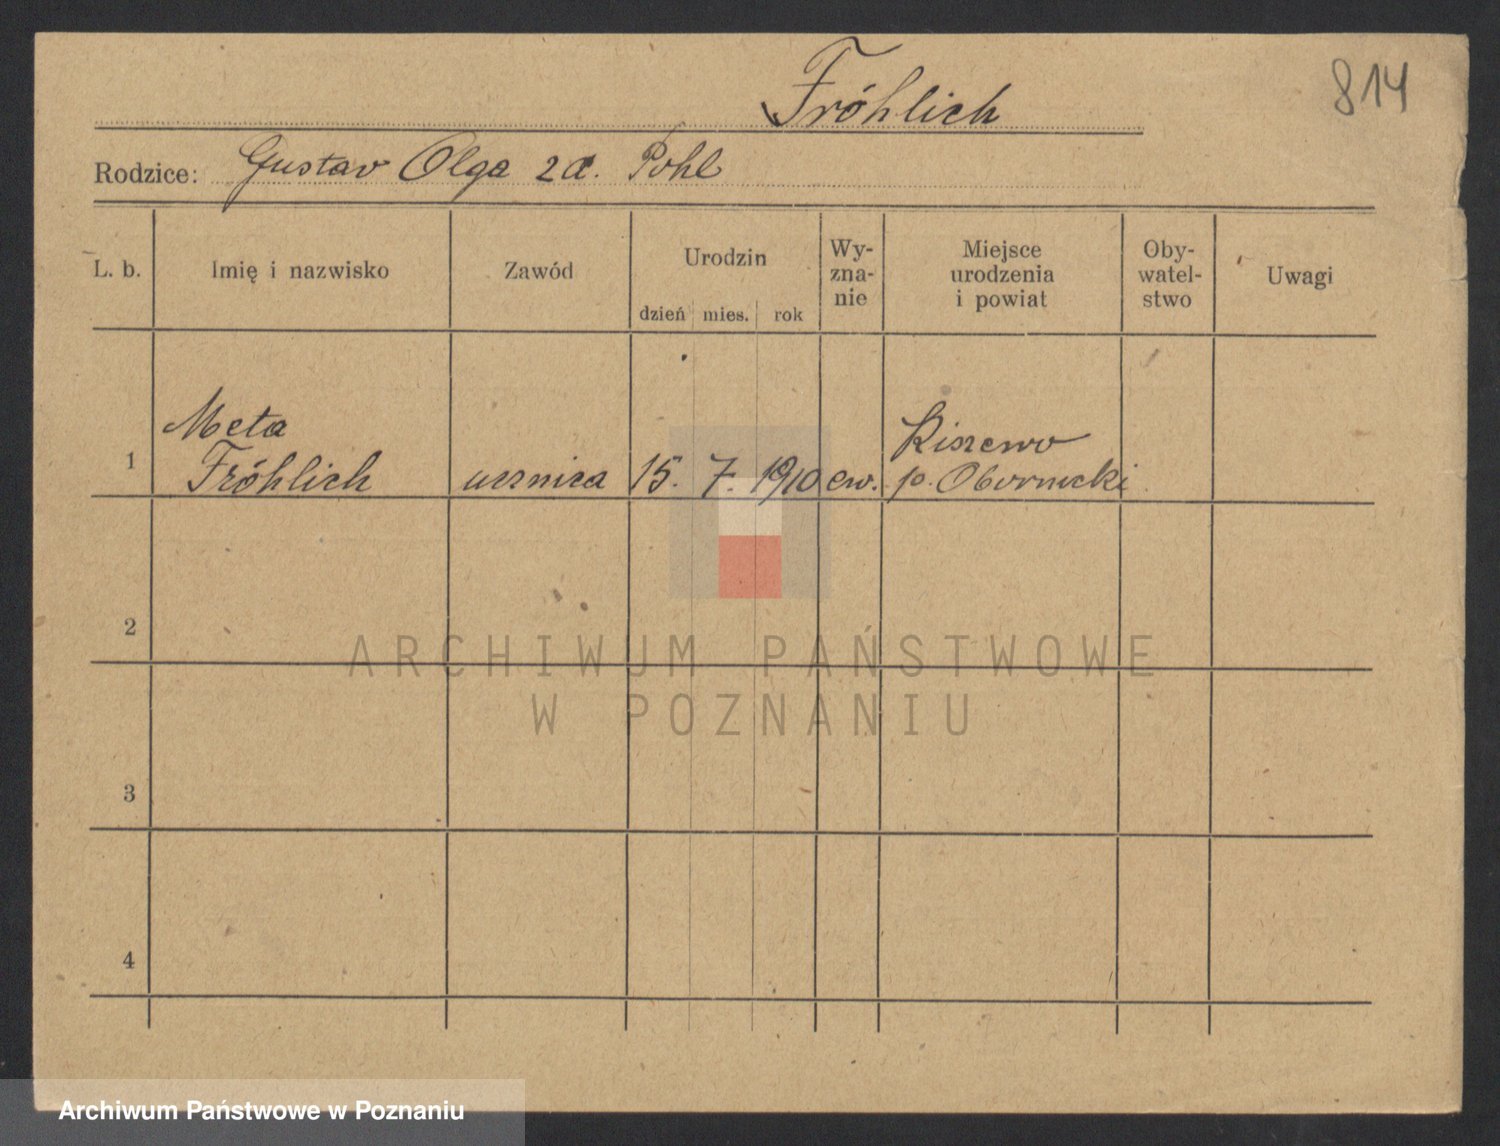 Fröhlich
814
Rodzice: Gustav Olga z d. Pohl
L. b.
Imię i nazwisko
Zawód
Urodzin
dzień mies. rok
Wy-
zna-
nie
Miejsce
urodzenia
i powiat
Oby-
watel-
stwo
Uwagi
1
Meta
Fröhlich
ucznica
15. 7. 1910
ew.
Kiszewo
p. Obornicki
2
3
4
ARCHIWUM PAŃSTWOWE
W POZNANIU
Archiwum Państwowe w Poznaniu